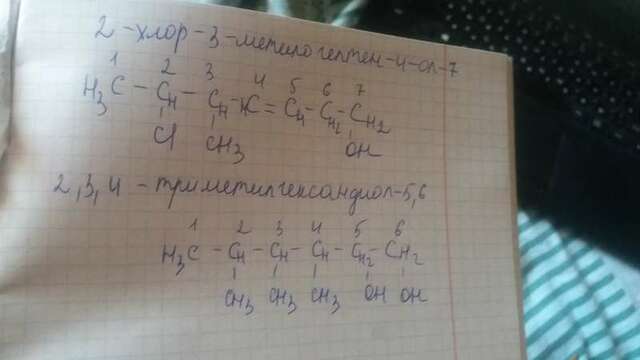 2-хлор-3-метилогептен-4-ол-7
1 2 3 4 5 6 7
H3C - CH - CH - HC = CH - CH2 - CH2
Cl CH3 OH
2,3,4-триметилгександиол-5,6
1 2 3 4 5 6
H3C - CH - CH - CH - CH2 - CH2
CH3 CH3 CH3 OH OH